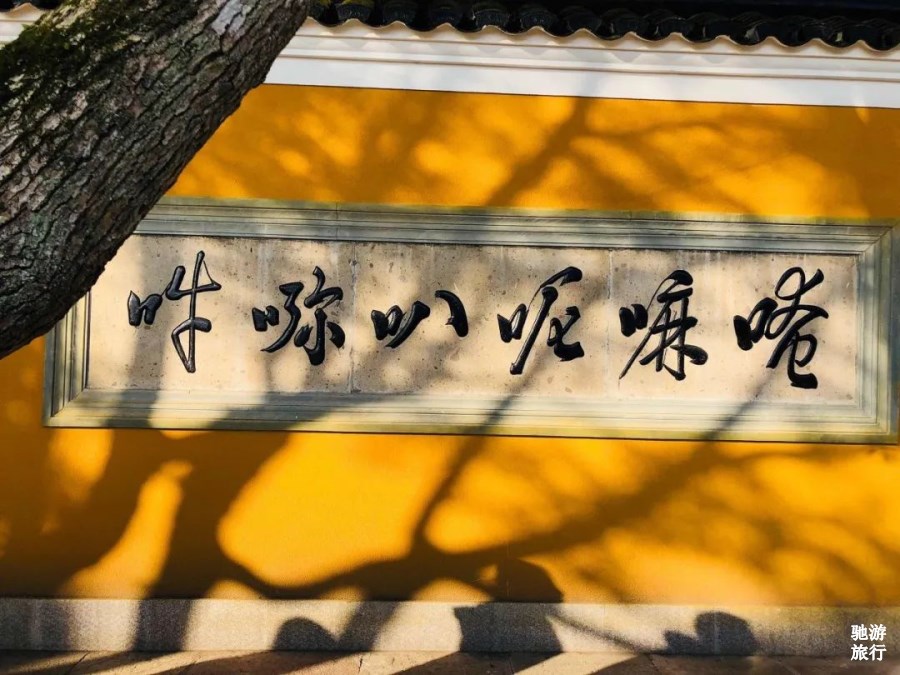 唵嘛呢叭咪吽
驰游
旅行